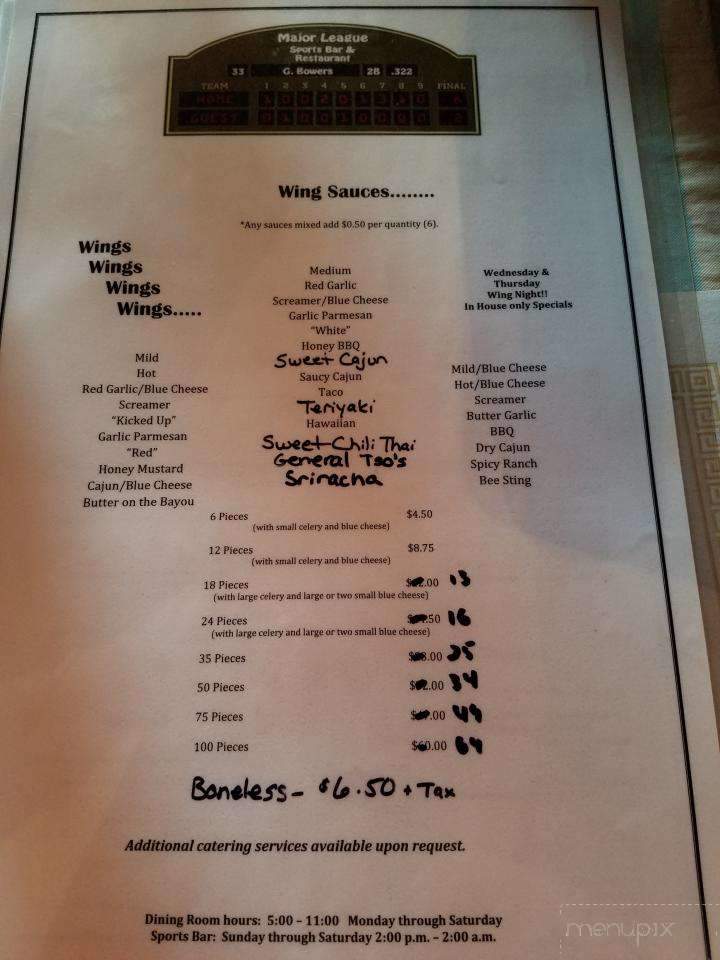 Major League
Sports Bar &
Restaurant
33 G. Bowers 2B .322
TEAM 1 2 3 4 5 6 7 8 9 FINAL
HOME
GUEST
Wing Sauces........
*Any sauces mixed add $0.50 per quantity (6).
Wings
Wings
Wings
Wings.....
Mild
Hot
Red Garlic/Blue Cheese
Screamer
"Kicked Up"
Garlic Parmesan
"Red"
Honey Mustard
Cajun/Blue Cheese
Butter on the Bayou
Medium
Red Garlic
Screamer/Blue Cheese
Garlic Parmesan
"White"
Honey BBQ
Sweet Cajun
Saucy Cajun
Taco
Teriyaki
Hawaiian
Sweet Chili Thai
General Tso's
Sriracha
Wednesday &
Thursday
Wing Night!!
In House only Specials
Mild/Blue Cheese
Hot/Blue Cheese
Screamer
Butter Garlic
BBQ
Dry Cajun
Spicy Ranch
Bee Sting
6 Pieces $4.50
(with small celery and blue cheese)
12 Pieces $8.75
(with small celery and blue cheese)
18 Pieces .00 13
(with large celery and large or two small blue cheese)
24 Pieces .50 16
(with large celery and large or two small blue cheese)
35 Pieces .00 25
50 Pieces .00 34
75 Pieces .00 49
100 Pieces .00 64
Boneless - $6.50 + Tax
Additional catering services available upon request.
Dining Room hours: 5:00 – 11:00 Monday through Saturday
Sports Bar: Sunday through Saturday 2:00 p.m. – 2:00 a.m.
menupix